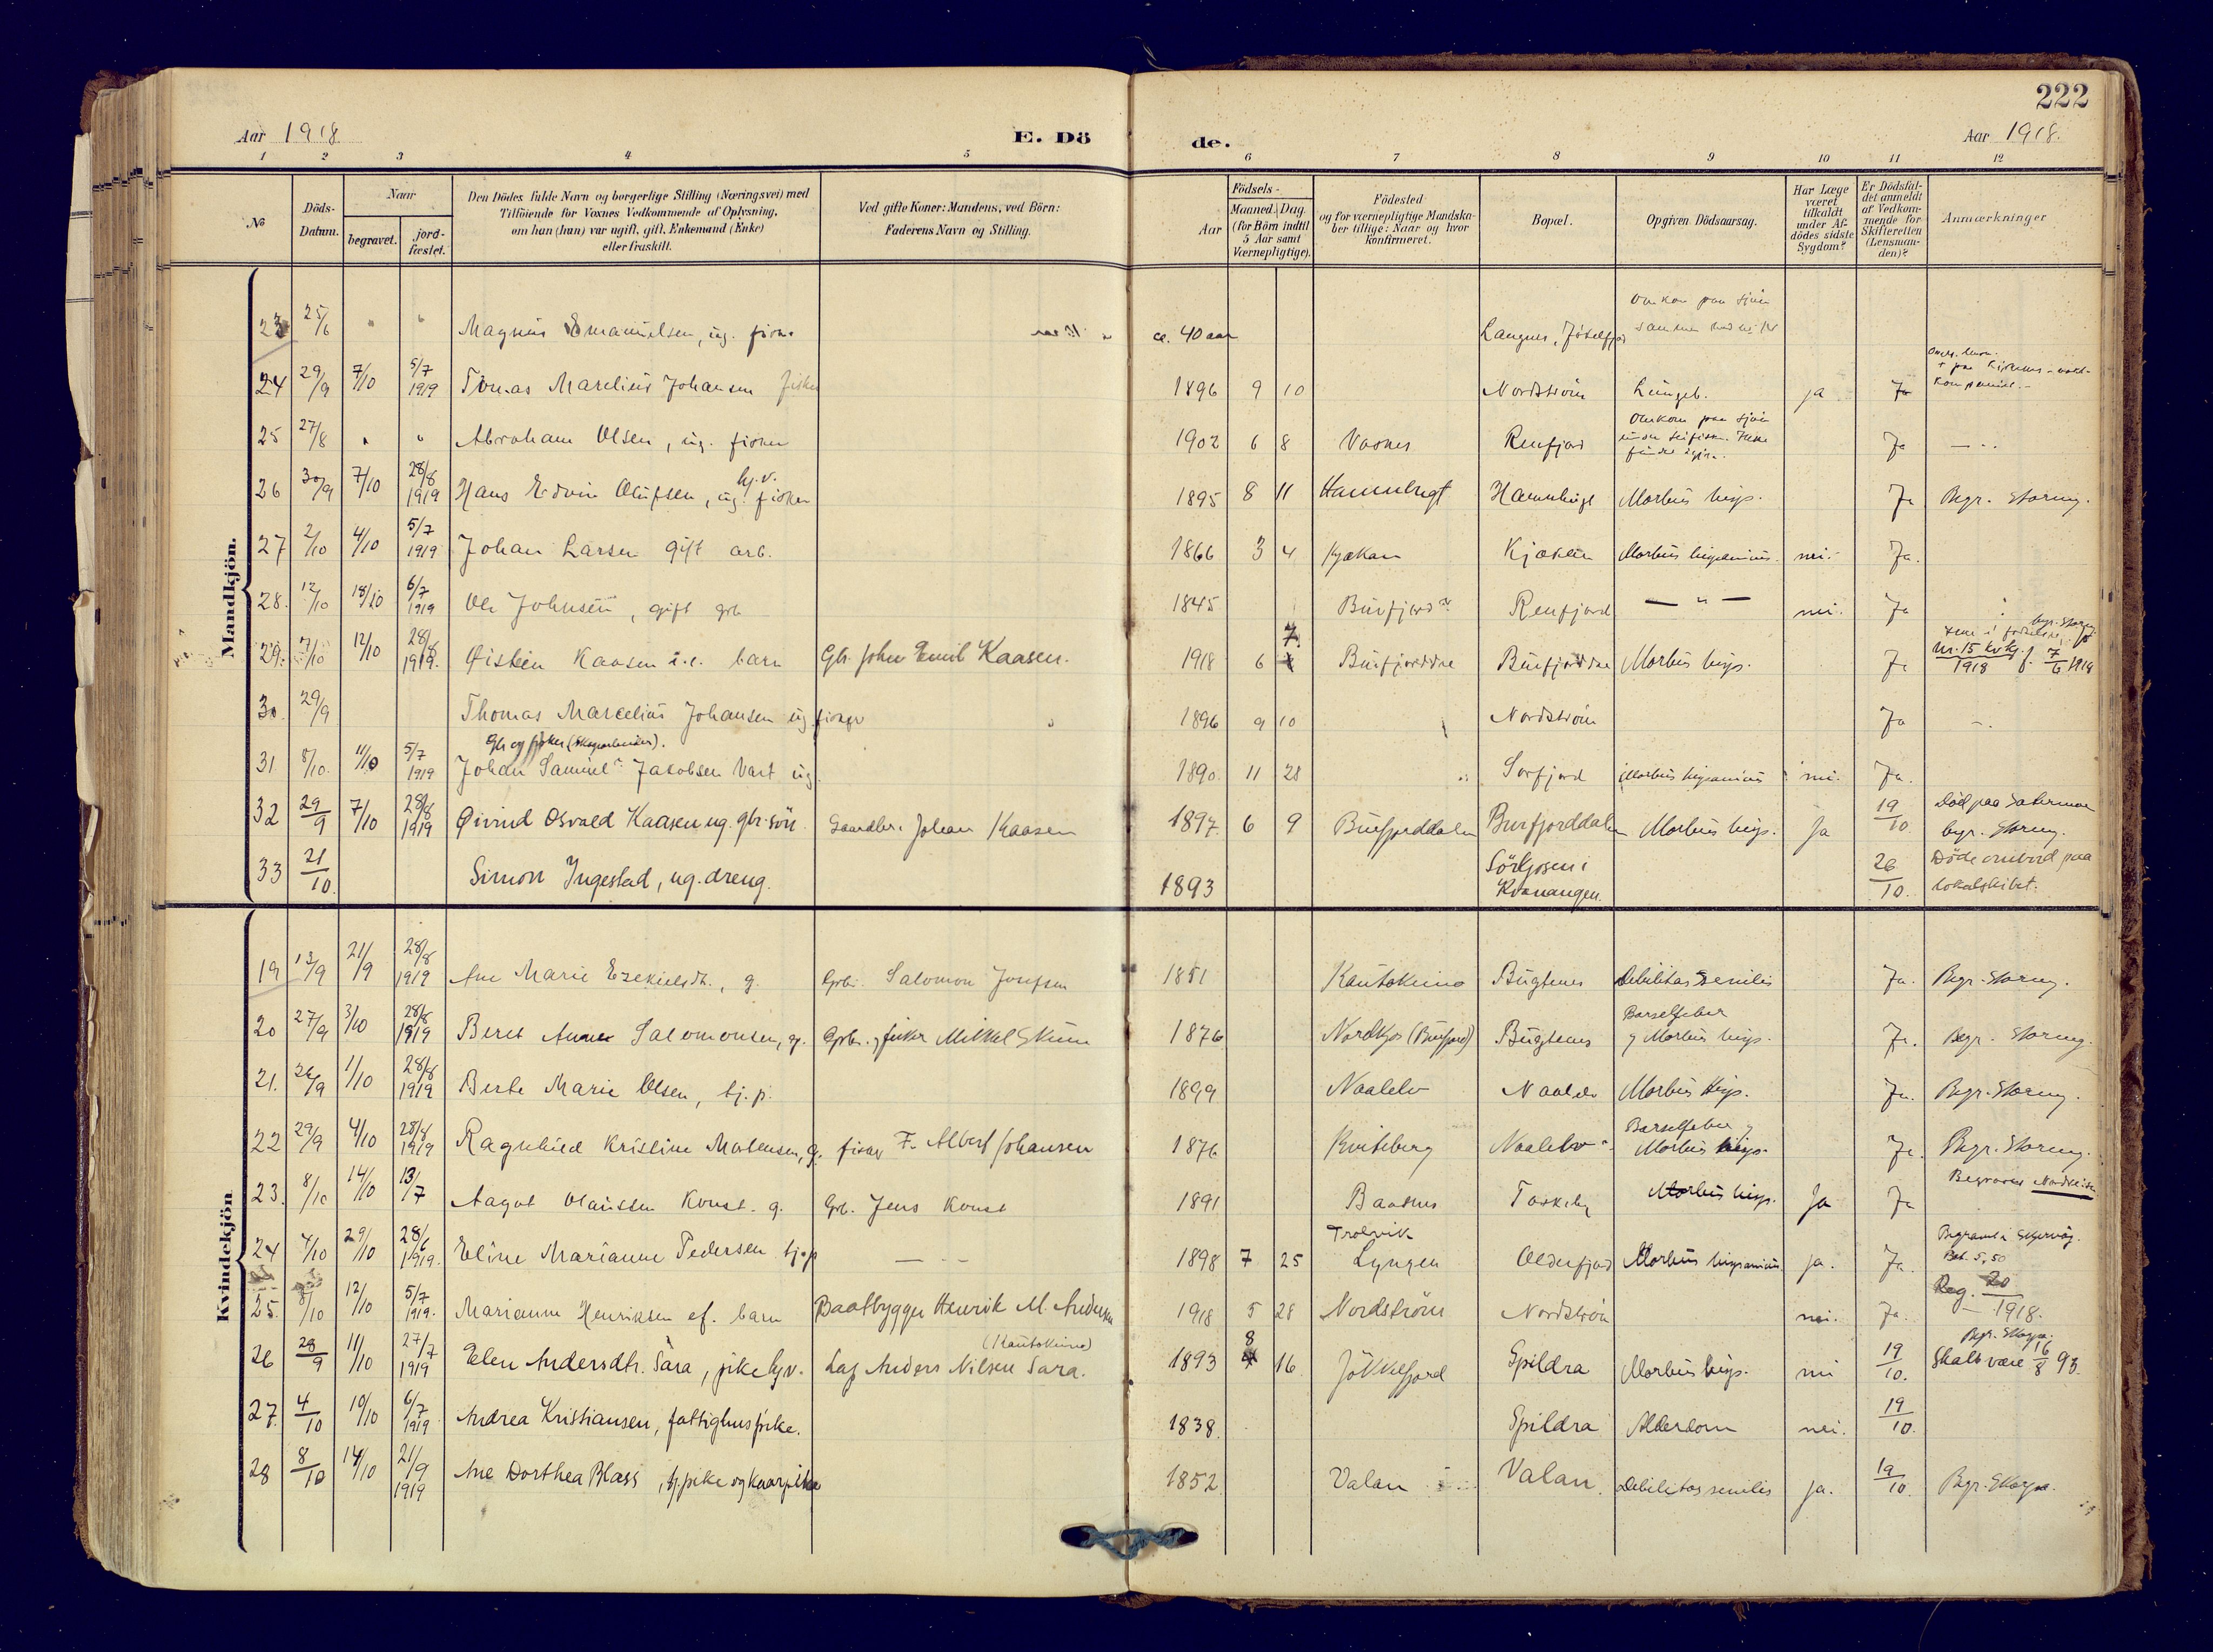 222
Aar 1918. E. Dö de. Aar 1918.
1 2 3 4 5 6 7 8 9 10 11 12
No
Döds-Datum.
Naar
begravet.
jord-fæstet.
Den Dödes fulde Navn og borgerlige Stilling (Næringsvei) med
Tilföiende for Voxnes Vedkommende af Oplysning,
om han (hun) var ugift, gift, Enkemand (Enke)
eller fraskilt.
Ved gifte Koner: Mandens, ved Börn:
Faderens Navn og Stilling.
Aar
Födsels-
Maaned. Dag.
(for Börn indtil
5 Aar samt
Værnepligtige).
Födested
og for værnepligtige Mandska-
ber tillige: Naar og hvor
konfirmeret.
Bopæl.
Opgiven Dödsaarsag.
Har Læge
været
tilkaldt
under Af-
dödes sidste
Sygdom?
Er Dödsfal-
det anmeldt
af Vedkom-
mende for
Skifteretten
(Lensman-
den)?
Anmærkninger
Mandkjön.
23 25/6 " " Magnus Emanuelsen, ug. fisker ca. 40 aar Langnes, Jökelfjord Omkom paa sjöen
sammen med
24 29/9 7/10 5/7 1919 Tomas Marelius Johansen fisker 1896 9 10 Nordström Lungeb. ja Ja
25 27/8 " " Abraham Olsen, ug. fisker 1902 6 8 Vasnes Renfjord Omkom paa sjöen Ja —"—
26 30/9 7/10 28/8 1919 Hans Edvin Olufsen, ug. fisker hj.v. 1895 8 11 Hamnbugt Hamnbugt Morbus hisp. Ja Begr. Storeng.
27 2/10 4/10 5/7 1919 Johan Larsen gift arb. 1866 3 4 Kjækan Kjækan Morbus hispanicus. nei. Ja.
28. 12/10 18/10 6/7 1919 Ole Johnsen, gift grb 1845 Burfjord Renfjord — " — nei. Ja
29. 7/10 12/10 28/8 1919. Öistein Kaasen barn Gb. John Emil Kaasen. 1918 6 7 Burfjorddal Burfjorddal Morbus hisp. Ja begr. Storeng.
nr. 15 kvkj. f. 7/6 1918
1918
30. 29/9 Thomas Marcelius Johansen ug. fisker 1896 9 10 Nordström Ja —
Gb og fisker
31. 8/10. 11/10 5/7 1919 Johan Samuel Jakobsen Vart ug. 1890. 11 28 Sörfjord Morbus hispanicus nei. Ja.
32 29/9 7/10 28/8 1919 Öivind Osvald Kaasen ug. gbr. sön Gaardbr. Johan Kaasen 1897. 6 9 Burfjorddalen Burfjorddalen Morbus hisp. Ja 19/10. Död paa Sætermoen
begr. Storeng.
33 21/10. Simon Ingestad, ug. dreng. 1893 Sörkjosen i
Kvænangen. 26/10. Döde ombord paa
lokalskibet.
Kvindekjön
19 13/9 21/9 28/8 1919 Ane Marie Ezekielsdt., g. Grb. Salomon Josefsen 1851 Kautokeino Bugtenes Debilitas senilis Ja. Begr. Storeng.
20 27/9 3/10 28/8 1919 Beret Anne Salomonsen, g. Grb. og fisker Mikkel Skum 1876 Nordkjos (Burfjord) Bugtenes Barselfeber
og Morbus hisp. Ja. Begr. Storeng.
21. 26/9 1/10 28/8 1919 Berte Marie Olsen, tj.p. 1899 Naalelv Naalelv Morbus Hisp. Ja. Begr. Storeng.
22 29/9 4/10 28/8 1919 Ragnhild Kristine Mortensen, g. fisker F. Albert Johansen 1876 Kviteberg Naalelv Barselfeber og
Morbus hisp. Ja. Begr. Storeng.
23. 8/10 14/10 13/7 Aagot Olaussen Konst. g. Grb. Jens Konst 1891 Baasnes Toskelv Morbus hisp. Ja Ja Begravet Nordreisa
24 4/10 29/10 28/6 1919. Eline Marianne Pedersen tj.p — " — 1898 7 25 Trolvik
Lyngen Olderfjord Morbus hispanicus ja. Ja. Begravet i Skjervöy.
Bet. 5,50
25. 8/10 12/10 5/7 1919. Marianne Henriksen ef. barn Baatbygger Henrik M. Andersen 1918 5 28 Nordström Nordström nei. Ja. Reg. 20
1918.
26 28/9 11/10 27/7 1919 Elen Andersdtr. Sara, pike hjv. Lap Anders Nilsen Sara. (Kautokeino) 1893 8 16 Jökkelfjord Spildra Morbus hisp. nei 19/10. Begr. Skorpa.
Skalt være 16/8 93.
27. 4/10 10/10 6/7 1919 Andrea Kristiansen, fattighuspike. 1838. Spildra Alderdom nei. 19/10.
28 8/10 14/10 21/9 1919 Ane Dorthea Blass, tj.pike og kaarpike 1852. Valan Valan. Debilitas senilis ja. 19/10. Begr. Skorpa.